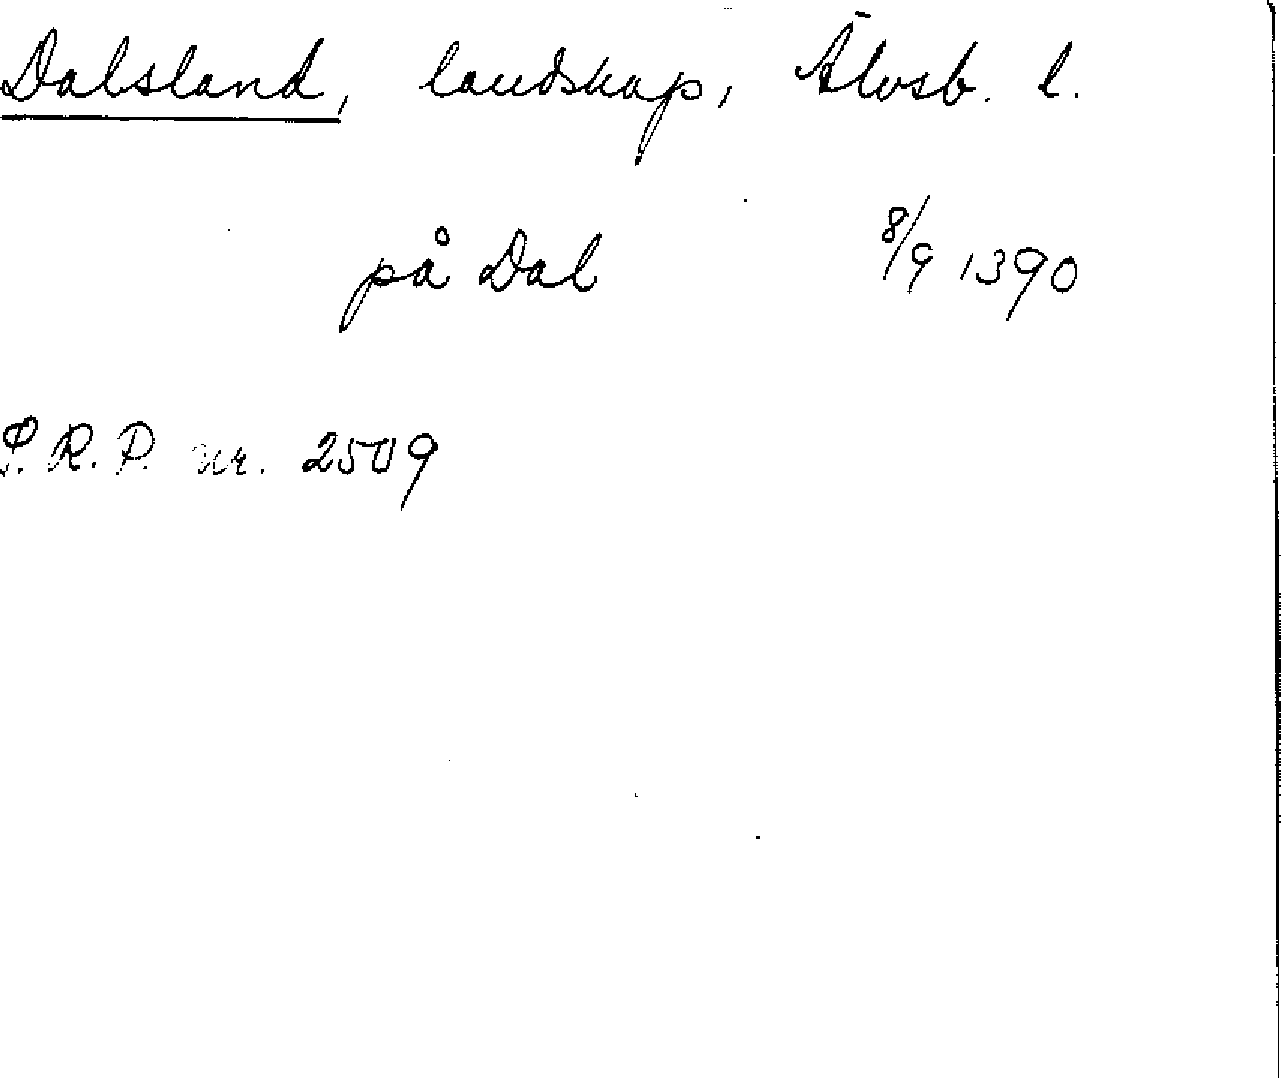 Dalsland, landskap, Älvsb. l.
på Dal 8/9 1390
S.R.P. nr. 2509